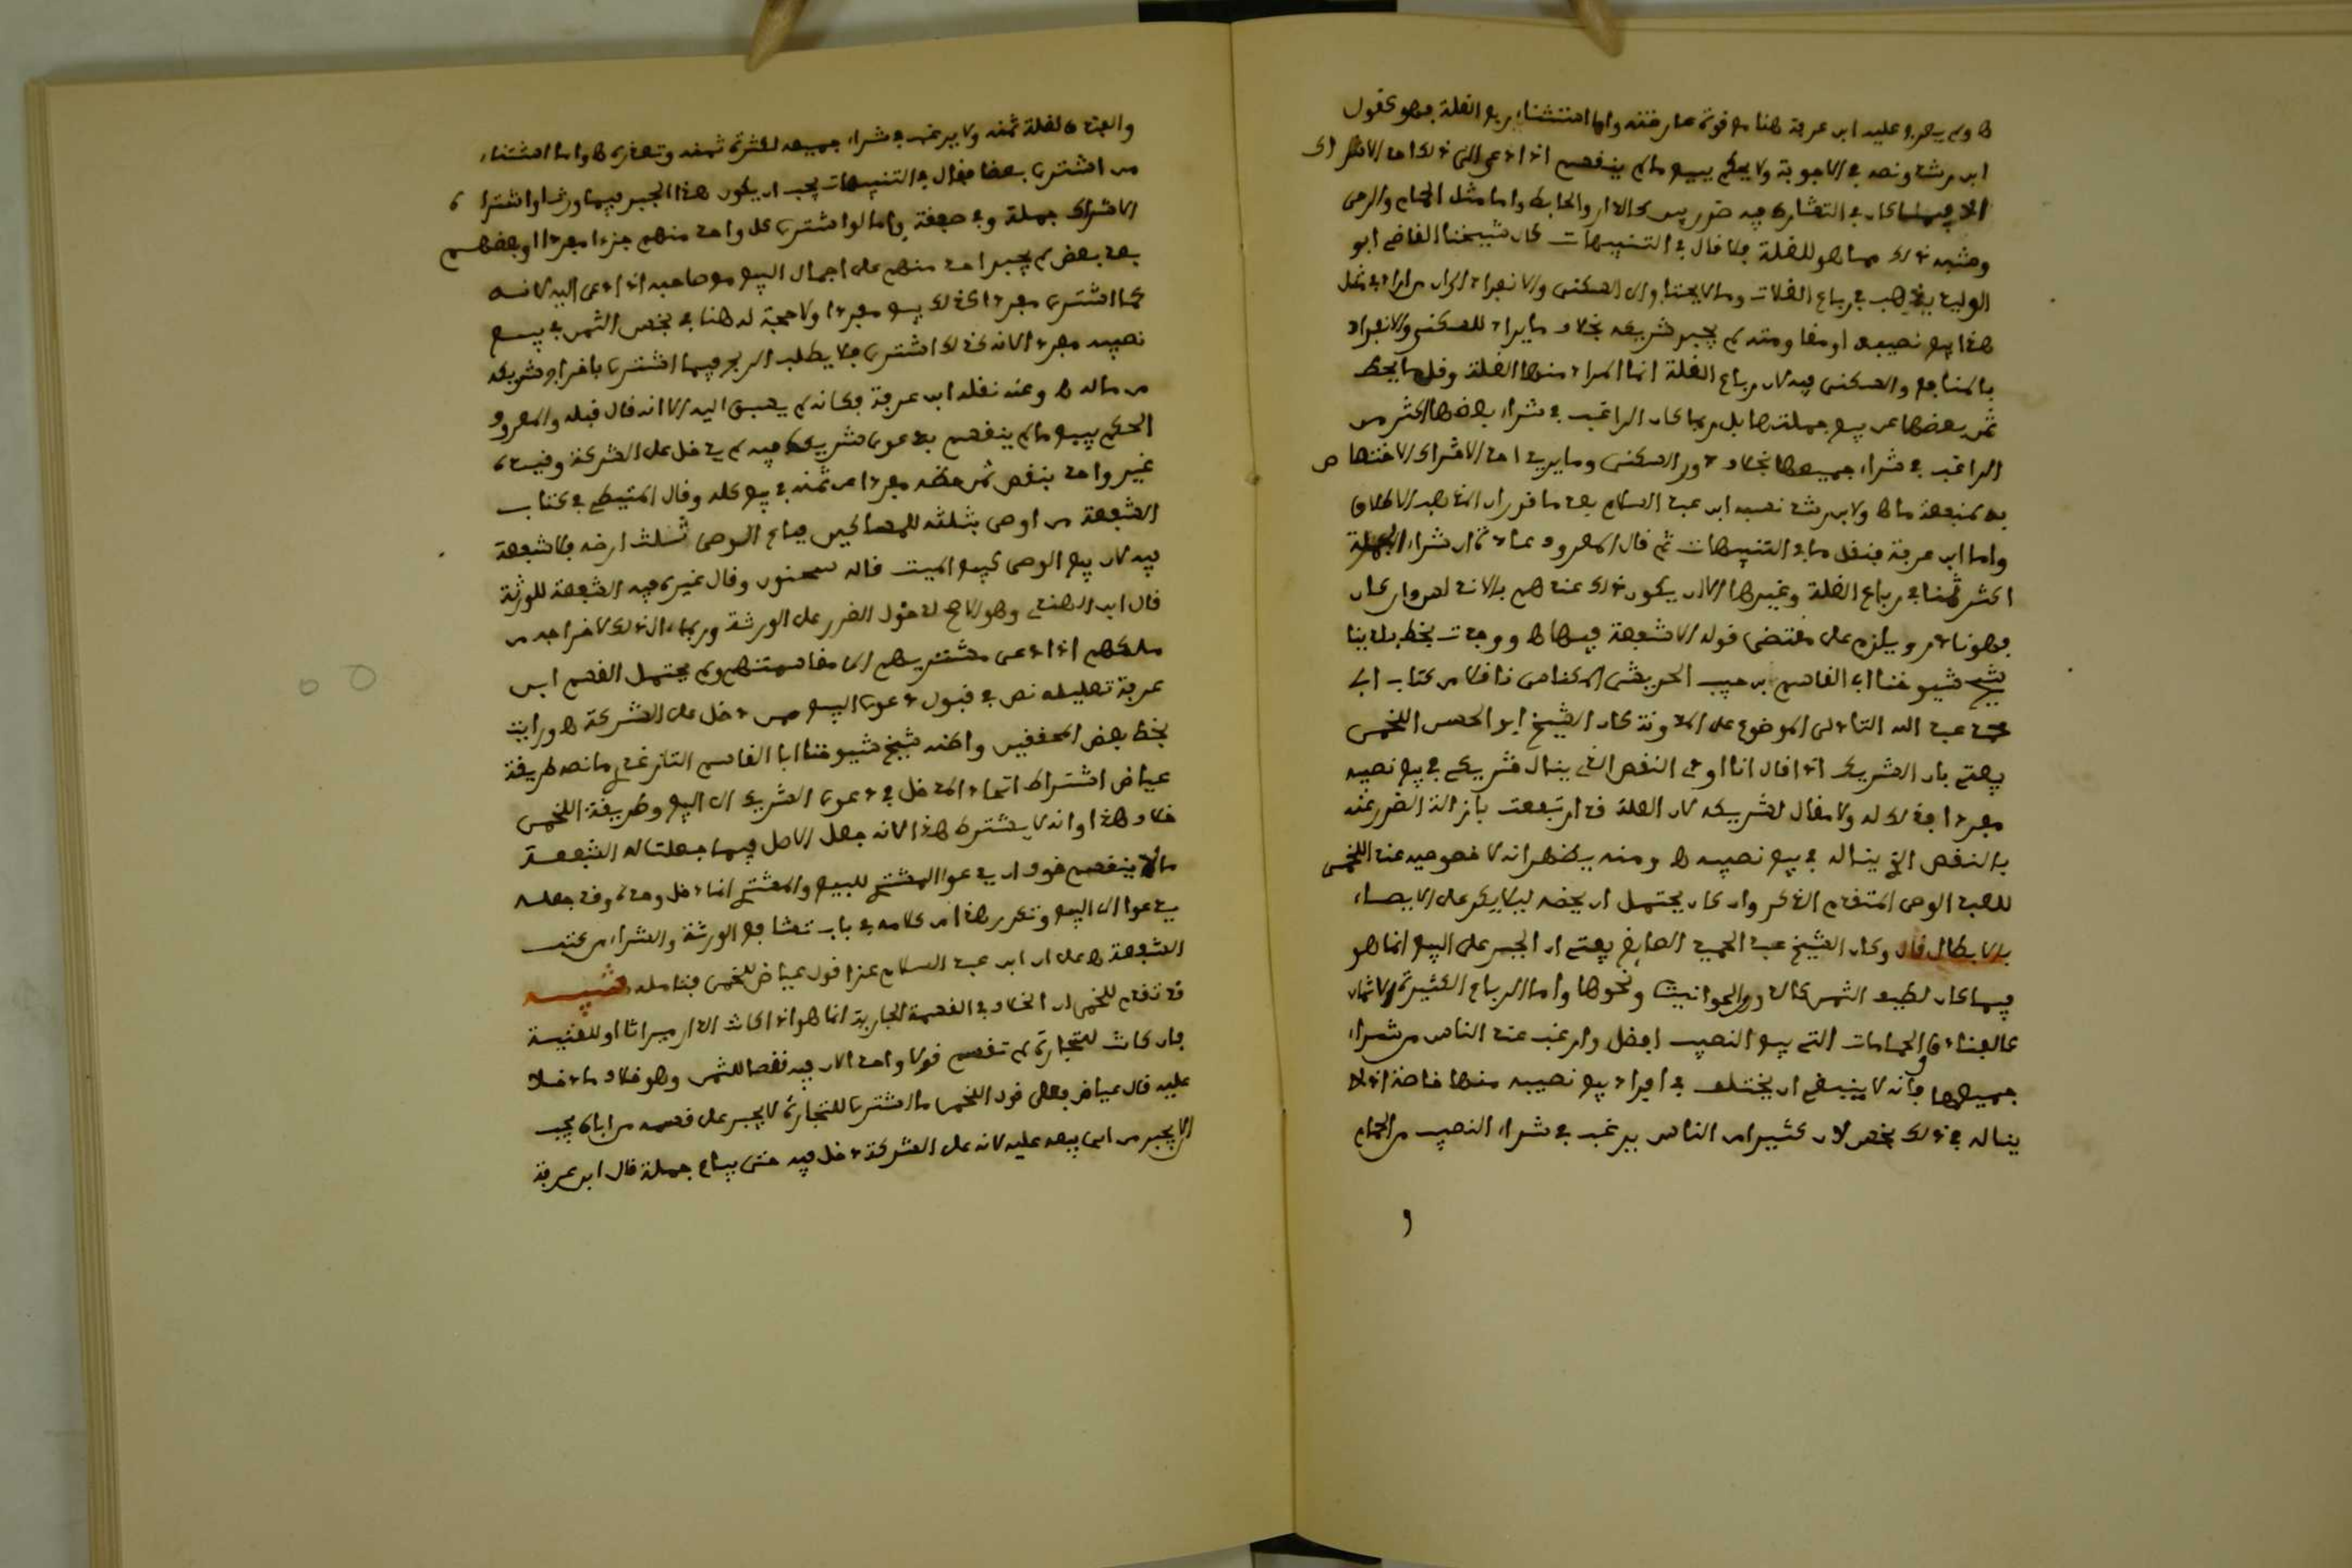 ها ولم يعرج عليه ابن عرفة هنا مع قوة عارضته واما استثناء ربع الغلة فهو كقول
ابن رشد ونصه في الاجوبة ولا يحكم ببيع ما لم ينقسم اذا دعى الى ذلك احد الاشراك
الا فيما كان في التشارك فيه ضرر بين كالدار والحايط واما مثل الحمام والرحى
وشبه ذلك مما هو للغلة فلا قال في التنبيهات كان شيخنا القاضي ابو
الوليد يذهب في رباع الغلات وما لا يحتاج الى السكنى والانفراد الى ان من اراد في مثل
هذا بيع نصيبه او مقاومته لم يجبر شريكه بخلاف ما يراد للسكنى والانفراد
بالمنافع والسكنى فيه لان رباع الغلة انما المراد منها الغلة وقل ما يحط
ثمن بعضها عن بيع جملتها بل ربما كان الراغب في شراء بعضها اكثر من
الراغب في شراء جميعها بخلاف دور السكنى وما يريد احد الاشراك الاختصاص
به لمنفعة ما ها ولابن رشد نسبه ابن عبد السلام بعد ما قرر ان المذهب الاطلاق
واما ابن عرفة فنقل ما في التنبيهات ثم قال المعروف عادة ان شراء الجملة
اكثر ثمنا في رباع الغلة وغيرها الا ان يكون ذلك عندهم بالاندلس وان كان
فهو نادر ويلزم على مقتضى قوله الا شفعة فيها ها ووجدت بخط بلدينا
شيخ شيوخنا ابي القاسم بن حبيب الحريشي المكناسي ناقلا من كتاب ابي
محمد عبد الله التادلي الموضوع على المدونة كان الشيخ ابو الحسن اللخمي
يفتي بان الشريك اذا قال انا اودي النقص الذي ينال شريكي في بيع نصيبه
مفردا فذلك له ولا مقال لشريكه لان العلة قد ارتفعت بازالة الضرر عنه
بالنقص الذي يناله في بيع نصيبه ها ومنه يظهر انه لا خصوصية عند اللخمي
للعبد الوصى المتقدم الذكر وان كان يحتمل ان يخصه ليلا يكر على الايصاء
بالابطال قال وكان الشيخ عبد الحميد الصايغ يفتي ان الجبر على البيع انما هو
فيما كان لطيف الثمن كالدور والحوانيت ونحوها واما الرباع الكثيرة الاثمان
كالفنادق والحمامات التي بيع النصيب افضل وارغب عند الناس من شراء
جميعها فانه لا ينبغي ان يختلف في افراد بيع نصيبه منها خاصة اذ لا
يناله في ذلك بخس لان كثيرا من الناس يرغب في شراء النصيب من الحمام
و
والفندق لقلة ثمنه ولا يرغب في شراء جميعه لكثرة ثمنه وتعذره ها واما استثناء
من اشترى بعضا فقال في التنبيهات يجب ان يكون هذا الجبر فيما ورث او اشتراه
الاشراك جملة وفي صفقة واما لو اشترى كل واحد منهم جزءا مفردا او بعضهم
بعد بعض لم يجبر احد منهم على اجمال البيع مع صاحبه اذا دعى اليه لانه
كما اشترى مفردا كذلك يبيع مفردا ولا حجة له هنا في بخس الثمن في بيع
نصيبه مفردا لانه كذلك اشترى فلا يطلب الربح فيما اشترى باخراج شريكه
من ماله ها وعنه نقله ابن عرفة فكانه لم يسبق اليه الا انه قال قبله والمعروف
الحكم ببيع ما لم ينقسم بدعوى شريك فيه لم يدخل على الشركة وقيده
غير واحد بنقص ثمن حظه مفردا عن ثمنه في بيع كله وقال المتيطي في كتاب
الشفعة من اوصى بثلثه للمساكين فباع الوصي ثلث ارضه فلا شفعة
فيه لان بيع الوصي كبيع الميت قاله سحنون وقال غيره فيه الشفعة للورثة
قال ابن الهندي وهو الاصح لدخول الضرر على الورثة وربما آل ذلك لاخراجهم من
ملكهم اذا دعى مشتريهم الى مقاسمتهم ولم يحتمل القسم ابن
عرفة تعليله نص في قبول دعوى البيع ممن دخل على الشركة ها ورايت
بخط بعض المحققين واظنه شيخ شيوخنا ابا القاسم التازغدري ما نصه طريقة
عياض اشتراط اتحاد المدخل في دعوى الشريك الى البيع وطريقة اللخمي
خلاف هذا وانه لا يشترط هذا لانه جعل الاصل فيما جعلت له الشفعة
ما لا ينقسم خوف ان يدعو المشتري للبيع والمشتري انما دخل وحده وقد جعله
يدعو الى البيع وتكرر هذا من كلامه في باب تشافع الورثة والشراء من كتب
الشفعة ها على ان ابن عبد السلام عزا قول عياض للخمي فتامله تنبيه
قد تقدم للخمي ان الخلاف في القسمة الجارية انما هو اذا كانت الدار ميراثا او للقنية
فان كانت للتجارة لم تقسم قولا واحدا لان فيه نقصا للثمن وهو خلاف ما دخلا
عليه قال عياض فعلى قول اللخمي ما اشترى للتجارة لا يجبر على قسمه من اباه يجب
الا يجبر من ابى بيعه عليه لانه على الشركة دخل فيه حتى يباع جملة قال ابن عرفة